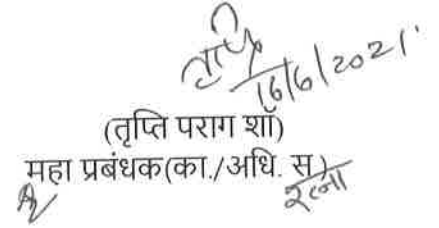 तृप्ति
16/6/2021
(तृप्ति पराग शॉ)
महा प्रबंधक(का./अधि. स)
रत्ना